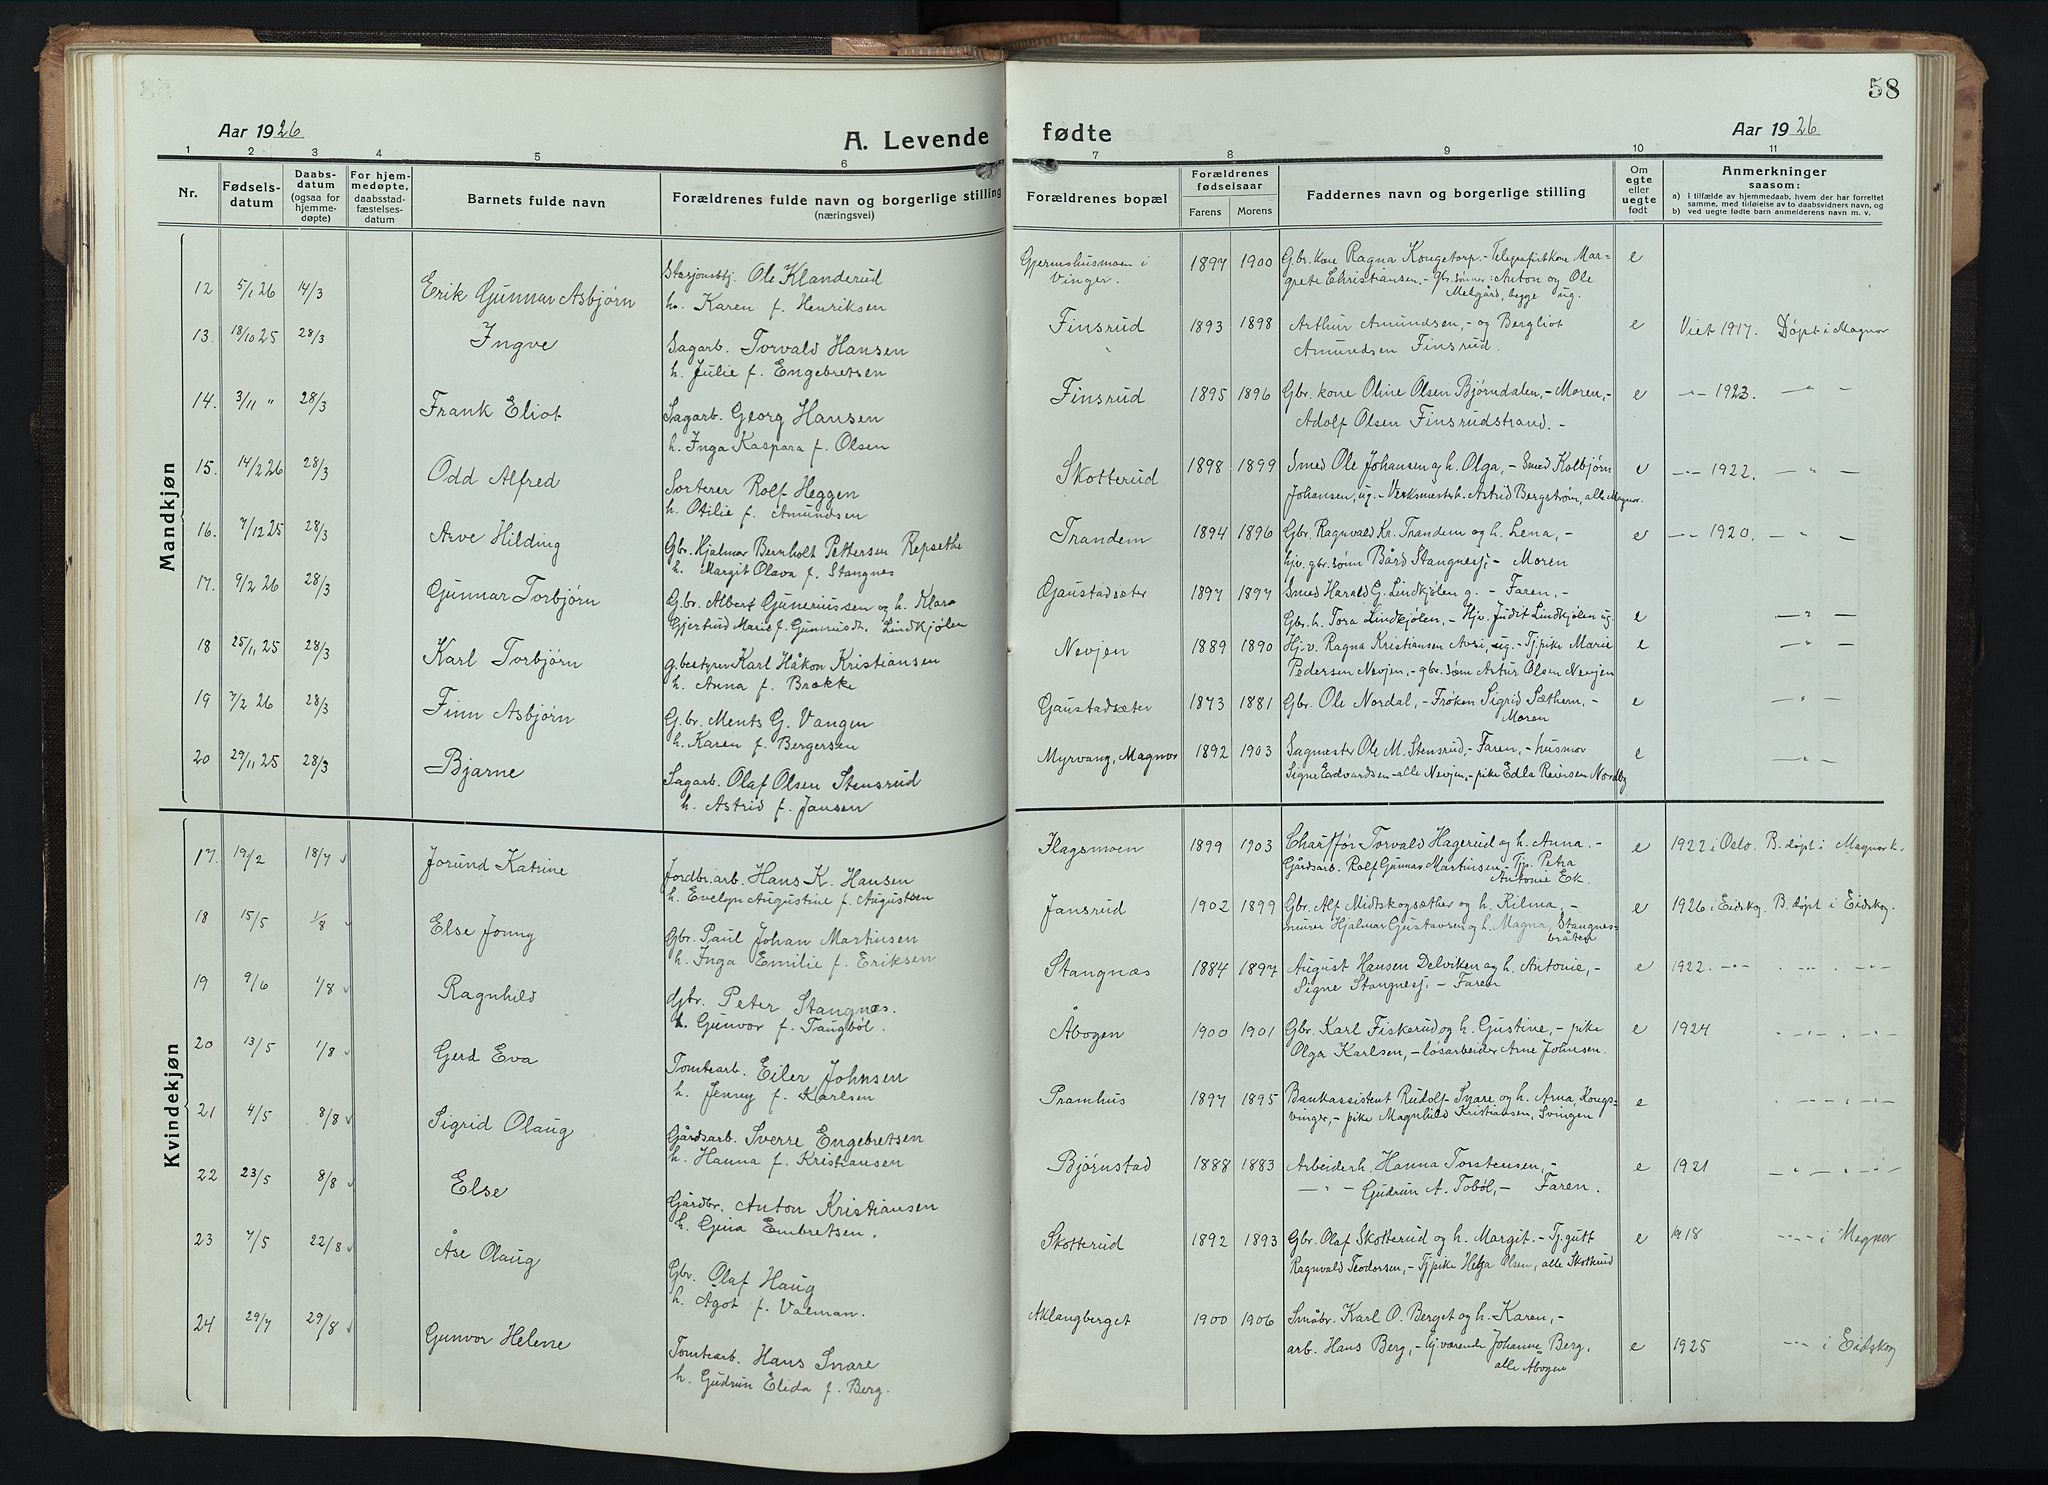 58
Aar 1926
A. Levende fødte
Aar 1926
1 2 3 4 5 6 7 8 9 10 11
Nr.
Fødsels-
datum
Daabs-
datum
(ogsaa for
hjemme-
døpte)
For hjem-
medøpte,
daabsstad-
fæstelses-
datum
Barnets fulde navn
Forældrenes fulde navn og borgerlige stilling
(næringsvei)
Forældrenes bopæl
Forældrenes
fødselsaar
Farens Morens
Faddernes navn og borgerlige stilling
Om
egte
eller
uegte
født
Anmerkninger
saasom:
a) i tilfælde av hjemmedaab, hvem der har forrettet
samme, med tilføielse av to daabsvidners navn, og
b) ved uegte fødte barn anmelderens navn m. v.
Mandkjøn
12 5/1 26 14/3 Erik Gunnar Asbjørn
Stasjonsbtj. Ole Klanderud
h. Karen f. Henriksen
Gjermshusmoen i
Vinger.
1897 1900
Gbr. kone Ragna Kongetorp.- Telegrafistkone Mar-
grete Christiansen.- gbr. sønner: Anton og Ole
Melgård, begge ug.
e
13. 18/10 25 28/3 Ingve
Sagarb. Torvald Hansen
h. Julie f. Engebretsen
Finsrud
1893 1898
Arthur Amundsen,- og Bergliot
Amundsen Finsrud.
e Viet 1917. Døpt i Magnor
14. 3/11 " 28/3 Frank Eliot
Sagarb. Georg Hansen
h. Inga Kaspara f. Olsen
Finsrud
1895 1896
Gbr. kone Oline Olsen Bjørndalen,- Moren,-
Adolf Olsen Finsrudstrand.-
e -"- 1923. - " -
15. 14/2 26 28/3 Odd Alfred
Sorterer Rolf Heggen
h. Otilie f. Amundsen
Skotterud
1898 1899
Smed Ole Johansen og h. Olga,- Smed Kolbjørn
Johansen, ug.- Verksmesterh. Astrid Bergstrøm, alle Magnor.
e -"- 1922. - " -
16. 7/12 25 28/3 Arve Hilding
Gbr. Hjalmar Bernholt Pettersen Repsethe
h. Margit Olava f. Stangnes
Trandem
1894 1896
Gbr. Ragnvald Kr. Trandem og h. Lena,-
hjv. gbr. sønn Bård Stangnessj;- Moren
e -"- 1920. - " -
17. 9/2 26 28/3 Gunnar Torbjørn
G.br. Albert Gunerius sen og h. Klara
Gjertrud Marie f. Gunerusdt. Lindkjølen
Gaustadsæter
1897 1897
Smed Harald G. Lindkjølen g. - Faren,-
Gbr. h. Tora Lindkjølen,- Hjv. Judit Lindkjølen ug.
e - " -
18 25/11 25 28/3 Karl Torbjørn
g.bestyrer Karl Håkon Kristiansen
h. Anna f. Brække
Nevjen
1889 1890
Hj.v. Ragna Kristiansen Avri, ug.- Tj.pike Marie
Pedersen Nevjen,- gbr. søm Artur Olsen Nevjen
e - " -
19 7/2 26 28/3 Finn Asbjørn
G.br. Ments G. Vangen
h. Karen f. Bergersen
Gaustadsæter
1873 1881
Gbr. Ole Nordal,- Frøken Sigrid Sæthern,-
Moren
e - " -
20 29/11 25 28/3 Bjarne
Sagarb. Olaf Olsen Stensrud
h. Astrid f. Jansen
Myrvang, Magnor
1892 1903
Sagmester Ole M. Stensrud,- Faren,- husmor
Signe Edvardsen - alle Nevjen,- pike Edla Reiersen Nordby
e - " -
Kvindekjøn
17. 19/2 18/7 Jorund Katrine
Jordbr.arb. Hans K. Hansen
h. Evelyn Augustine f. Augustsen
Flagsmoen
1899 1903
Chauffør Torvald Hagerud og h. Anna.-
Gårdsarb. Rolf Gunnar Martinsen - Tjp. Petra
Antonie Ek.
e 1922 i Oslo. B. døpt i Magnor k.
18 15/5 1/8 Else Jonny
Gbr. Paul Johan Martinsen
h. Inga Emilie f. Eriksen
Jansrud
1902 1899
Gbr. Alf Midtskogsæther og h. Kilma.-
murer Hjalmar Gustavsen og h. Magna, Stangnes-
bråten
e 1926 i Eidskog. B. døpt i Eidskog.
19 9/6 1/8 Ragnhild
gbr. Peter Stangnæs.
h. Gunvor f. Taugbøl.
Stangnæs
1884 1897
August Hansen Delviken og h. Antonie,-
Signe Stangnessj.- Faren
e 1922. -"- " -"-
20 13/5 1/8 Gerd Eva
Tomtearb. Eiler Johnsen
h. Jenny f. Karlsen
Åbogen
1900 1901
Gbr. Karl Fiskerud og h. Gustine,- pike
Olga Karlsen,- løsarbeider Arne Johnsen.
e 1924
21 4/5 8/8 Sigrid Olaug
Gårdsarb. Sverre Engebretsen
h. Hanna f. Kristiansen
Pramhus
1897 1895
Bankassistent Rudolf Snare og h. Arna, Kongs-
vinger,- pike Magnhild Kristiansen, Svingen
e
22 23/5 8/8 Else
Gårdbr. Anton Kristiansen
h. Gina Embretsen.
Bjørnstad
1888 1883
Arbeiderh. Hanna Torstensen,-
-"- Gudrun A. Tobøl,- Faren.
e 1921
23 7/5 22/8 Åse Olaug
Gbr. Olaf Haug
h. Agot f. Valman.
Skotterud
1892 1893
Gbr. Olaf Skotterud og h. Margit.- Tj.gutt
Ragnvald Teodorsen,- Tj.pike Helga Olsen, alle Skotterud
e 1918 -"- i Magnor
24 29/7 29/8 Gunvor Helene
Tomtearb. Hans Snare
h. Gudrun Elida f. Berg.
Aklangberget
1900 1906
Småbr. Karl O. Berget og h. Karen,-
arb. Hans Berg,- hj.værende Johanne Berg,
alle Åbogen
e 1925 -"- i Eidskog